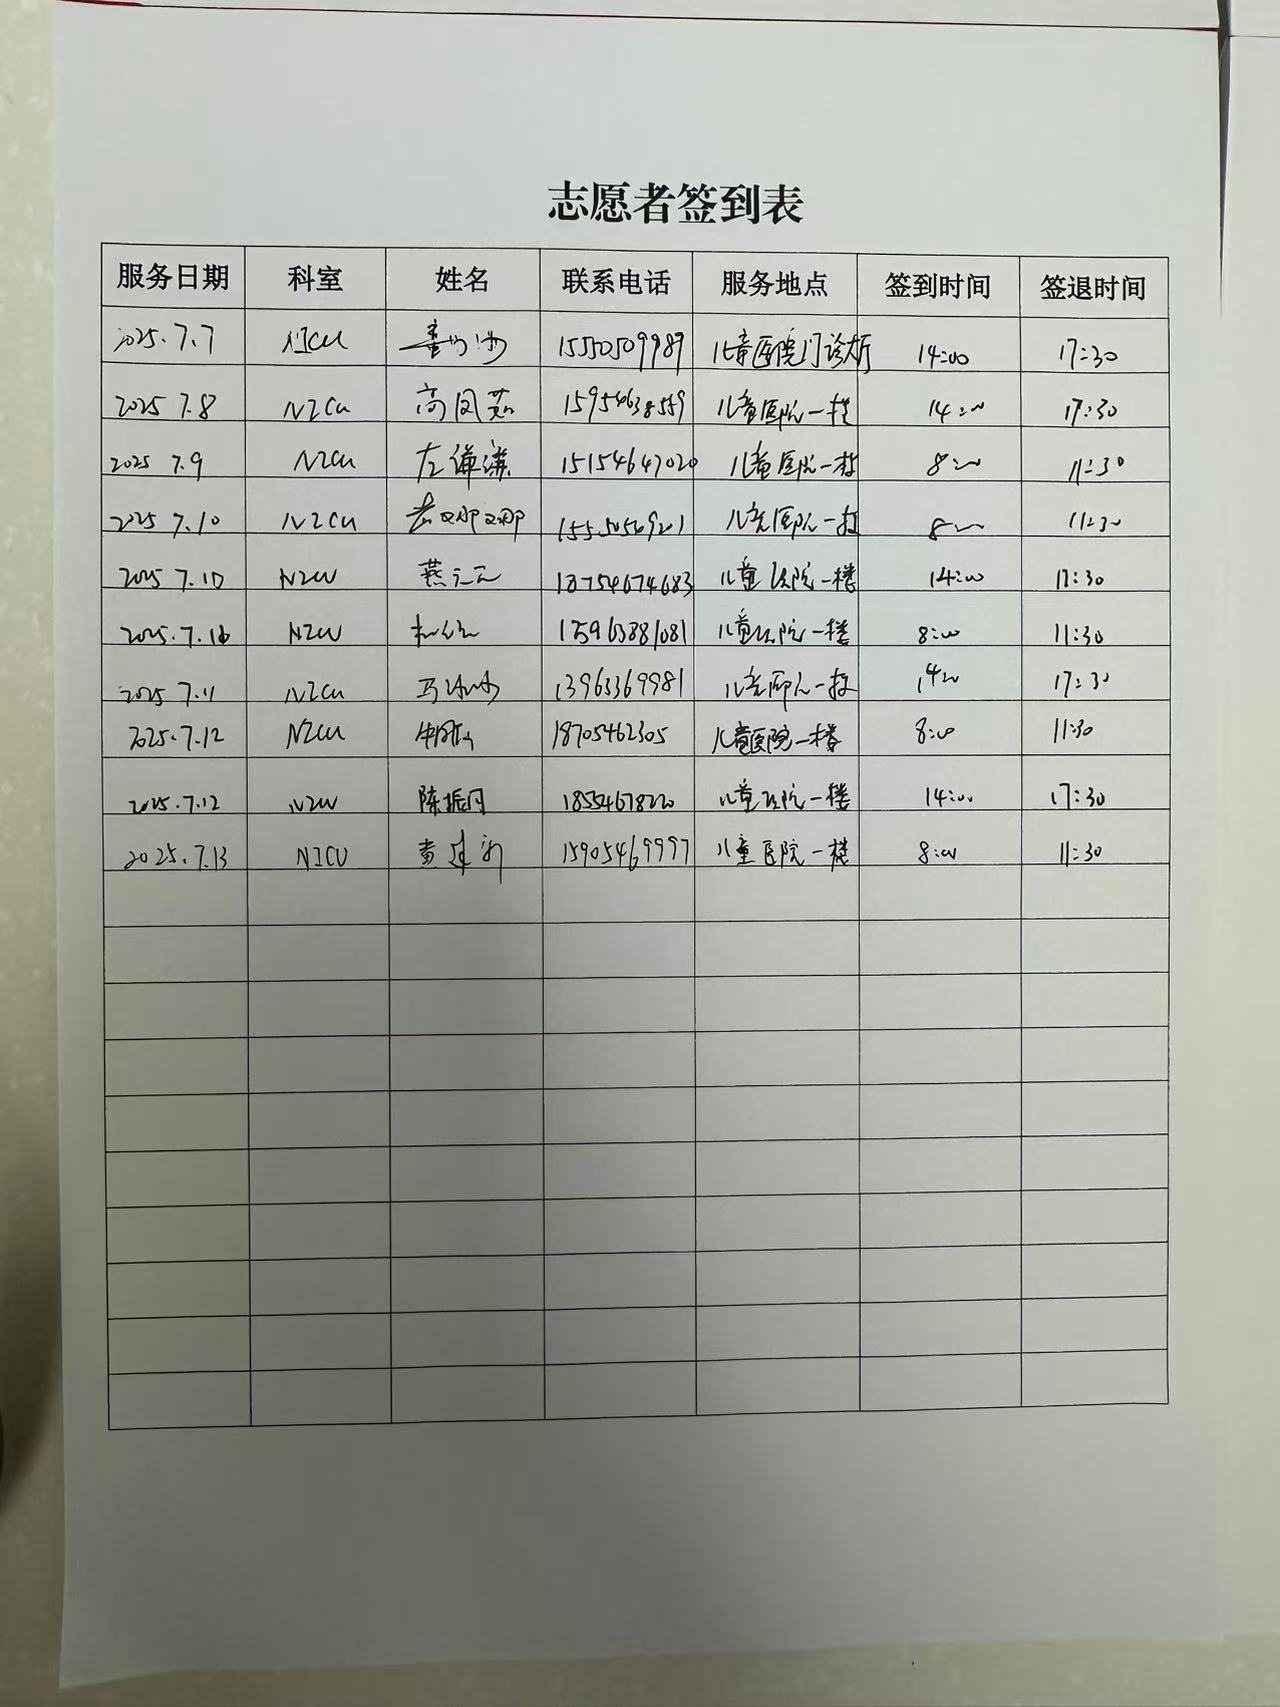 志愿者签到表
服务日期 科室 姓名 联系电话 服务地点 签到时间 签退时间
2025.7.7 NICU 15550509989 儿童医院门诊大厅 14:00 17:30
2025 7.8 NICU 高凤茹 15954638559 儿童医院一楼 14:00 17:30
2025 7.9 NICU 左 15154647020 儿童医院一楼 8:00 11:30
2025 7.10 NICU 儿童医院一楼 8:00 11:30
2025 7.10 NICU 燕 18754674683 儿童医院一楼 14:00 17:30
2025.7. NICU 15963881081 儿童医院一楼 8:00 11:30
2025 7.11 NICU 马 13963369981 儿童医院一楼 14:00 17:30
2025.7.12 NICU 18705462305 儿童医院一楼 8:00 11:30
2025.7.12 NICU 陈振丹 18554678220 儿童医院一楼 14:00 17:30
2025.7.13 NICU 黄建新 15905469997 儿童医院一楼 8:00 11:30